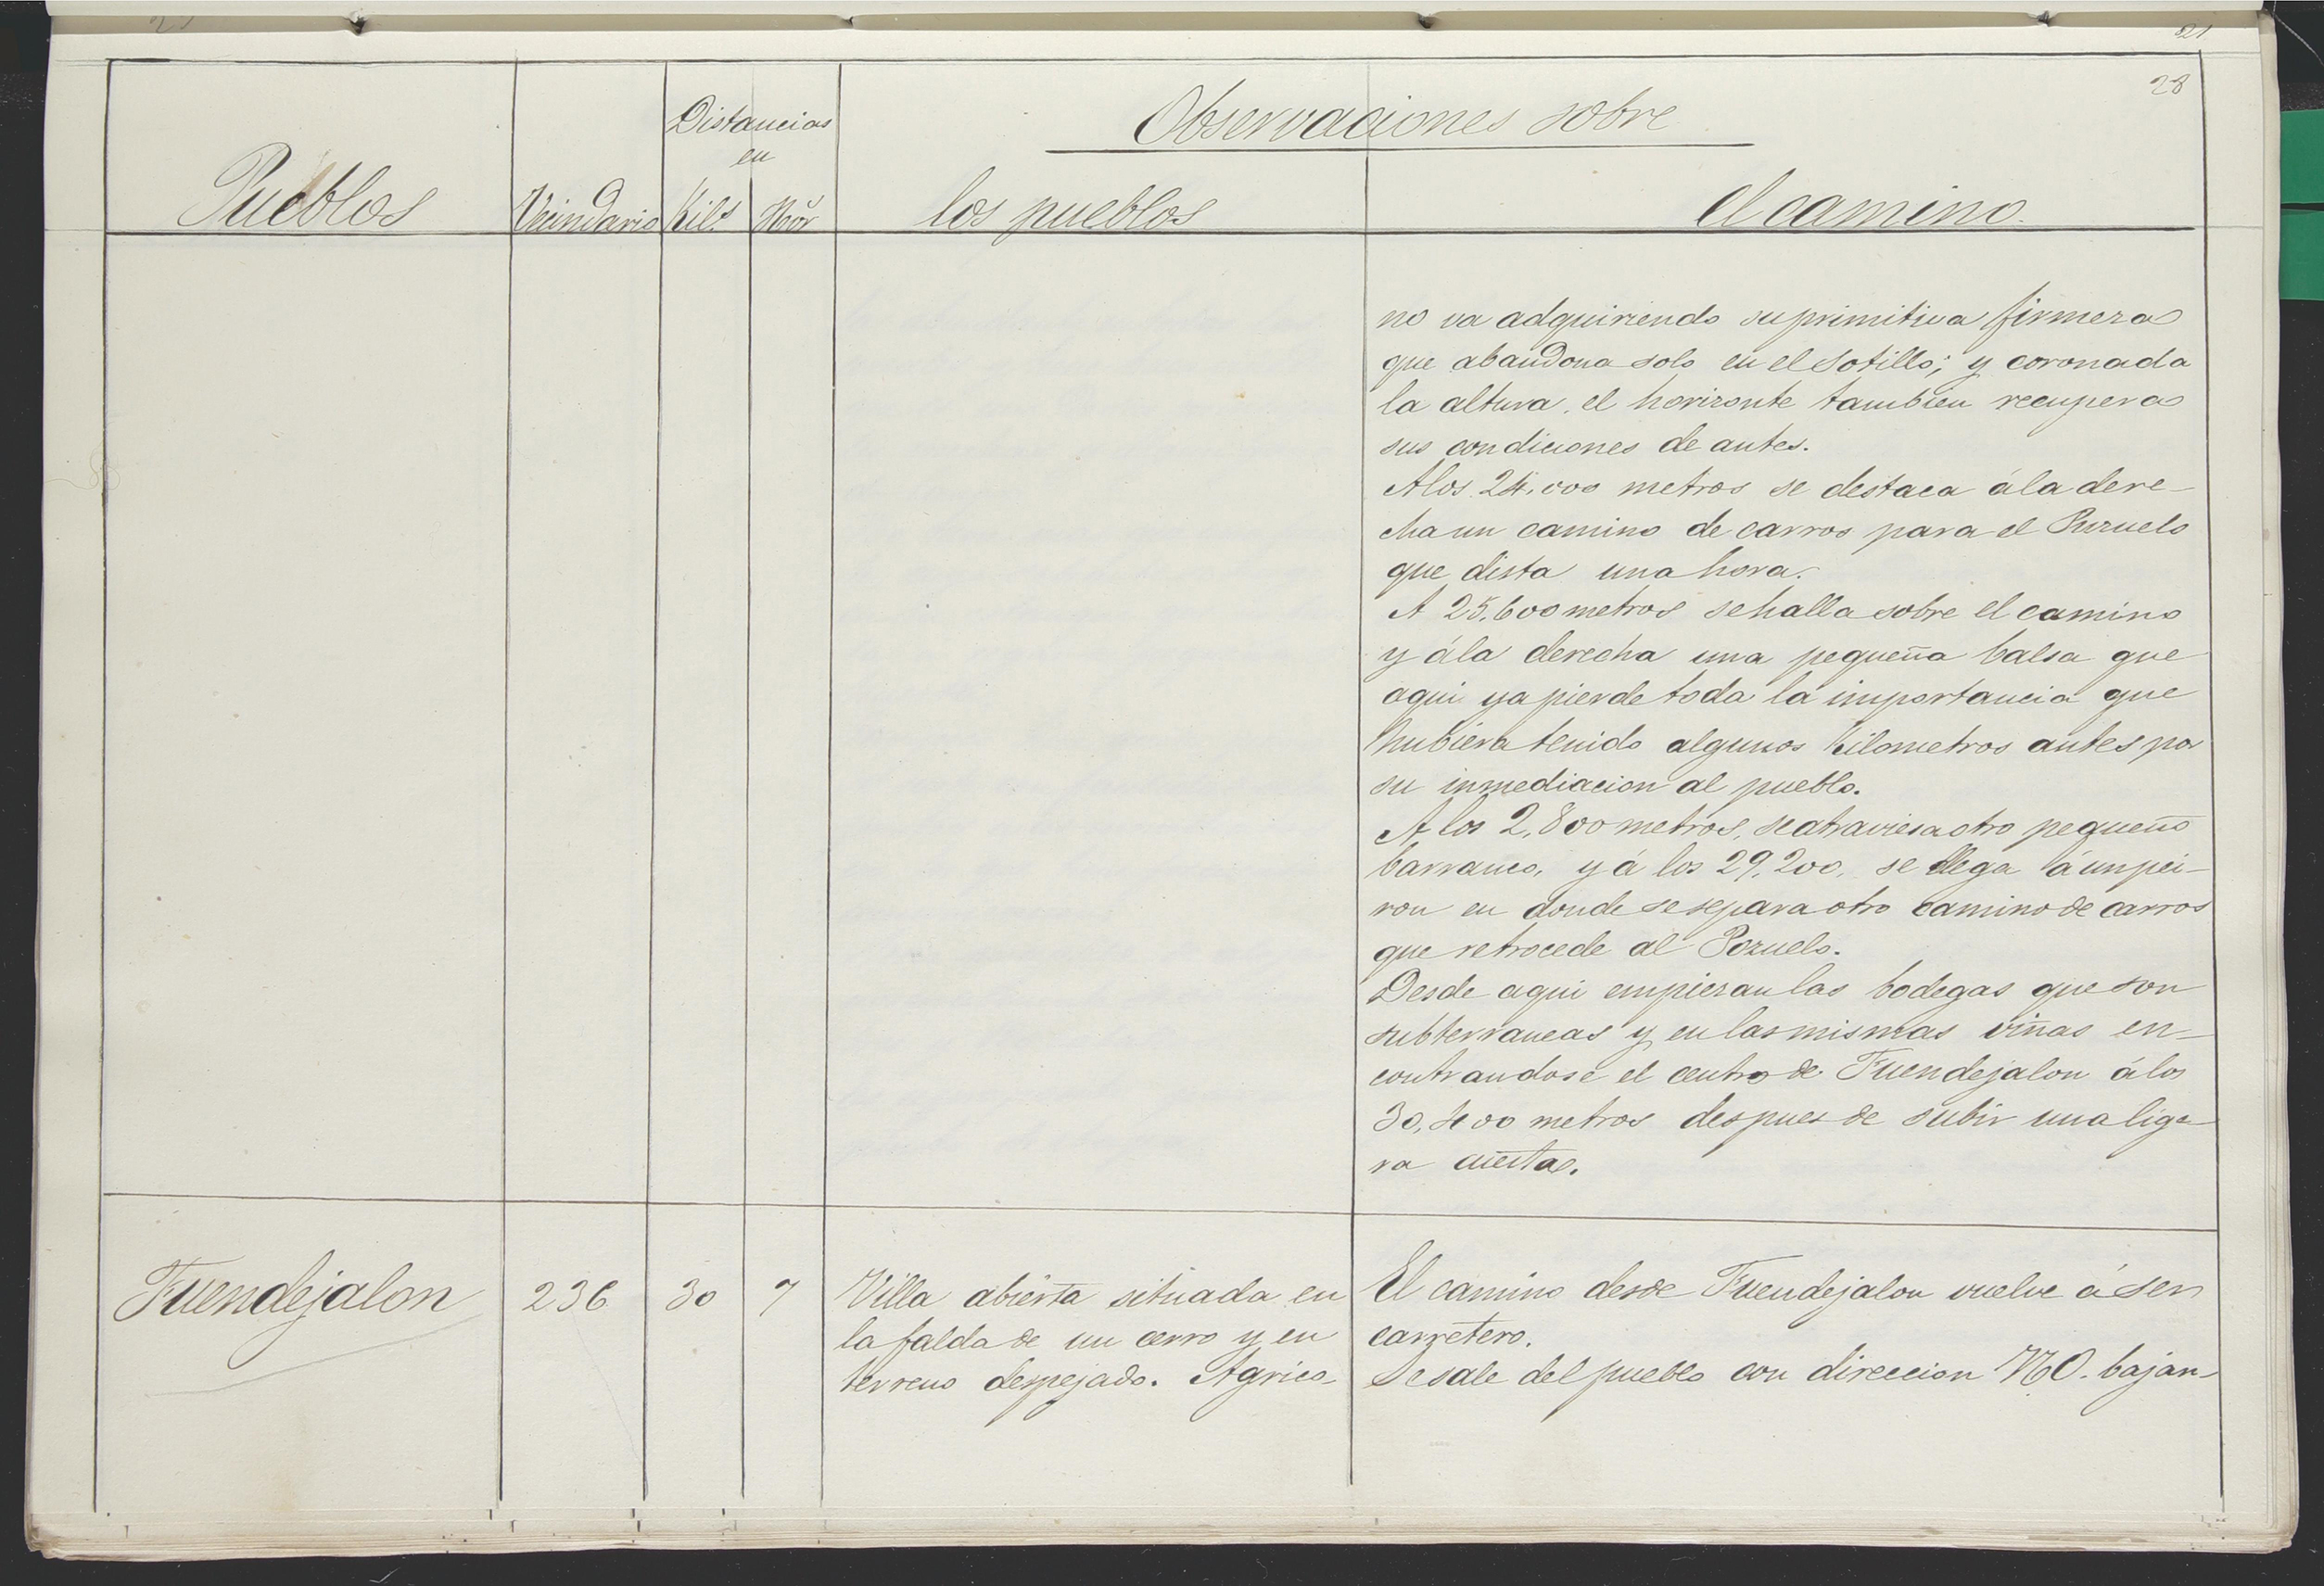 21
28
Observaciones sobre
Distancias
en
Pueblos
Vecindario
Kil.s
Hor
los pueblos
el camino.
no va adquiriendo su primitiva firmeza
que abandona solo en el Sotillo; y coronada
la altura, el horizonte tambien recupera
sus condiciones de antes.
A los 24,000 metros se destaca á la dere-
cha un camino de carros para el Pozuelo
que dista una hora.
A 25,600 metros se halla sobre el camino
y á la derecha una pequeña balsa que
aqui ya pierde toda la importancia que
hubiera tenido algunos Kilometros antes por
su inmediacion al pueblo.
A los 2,800 metros, se atraviesa otro pequeño
barranco, y á los 29,200, se llega á un pei-
ron en donde se separa otro camino de carros
que retrocede al Pozuelo.
Desde aqui empiezan las bodegas que son
subterraneas y en las mismas viñas en-
contrandose el centro de Fuendejalon á los
30,400 metros despues de subir una lige-
ra cuesta.
Fuendejalon
236
30
7
Villa abierta situada en
la falda de un cerro y en
terreno despejado. Agrico-
El camino desde Fuendejalon vuelve á ser
carretero.
Se sale del pueblo con direccion NO. bajan-